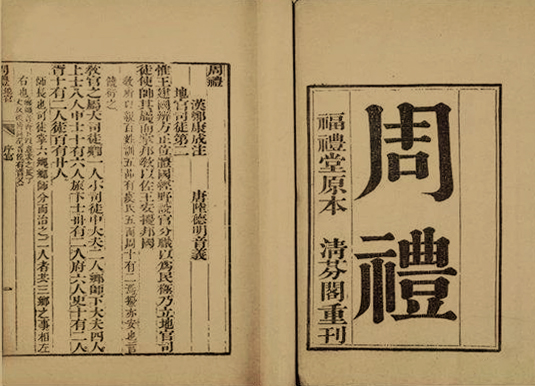 周禮
福禮堂原本
清芬閣重刊
周禮
地官司徒第二
漢鄭康成注
唐陸德明音義
惟王建國辨方正位體國經野設官分職以爲民極乃立地官司
徒使帥其屬而掌邦敎以佐王安擾邦國
敎官之屬大司徒卿一人小司徒中大夫二人鄉師下大夫四人
上士八人中士十有六人旅下士卅有二人府六人史十有二人
胥十有二人徒百有廿人
師長也司徒掌六鄉鄉師分而治之二人者共三鄉之事相左
右也